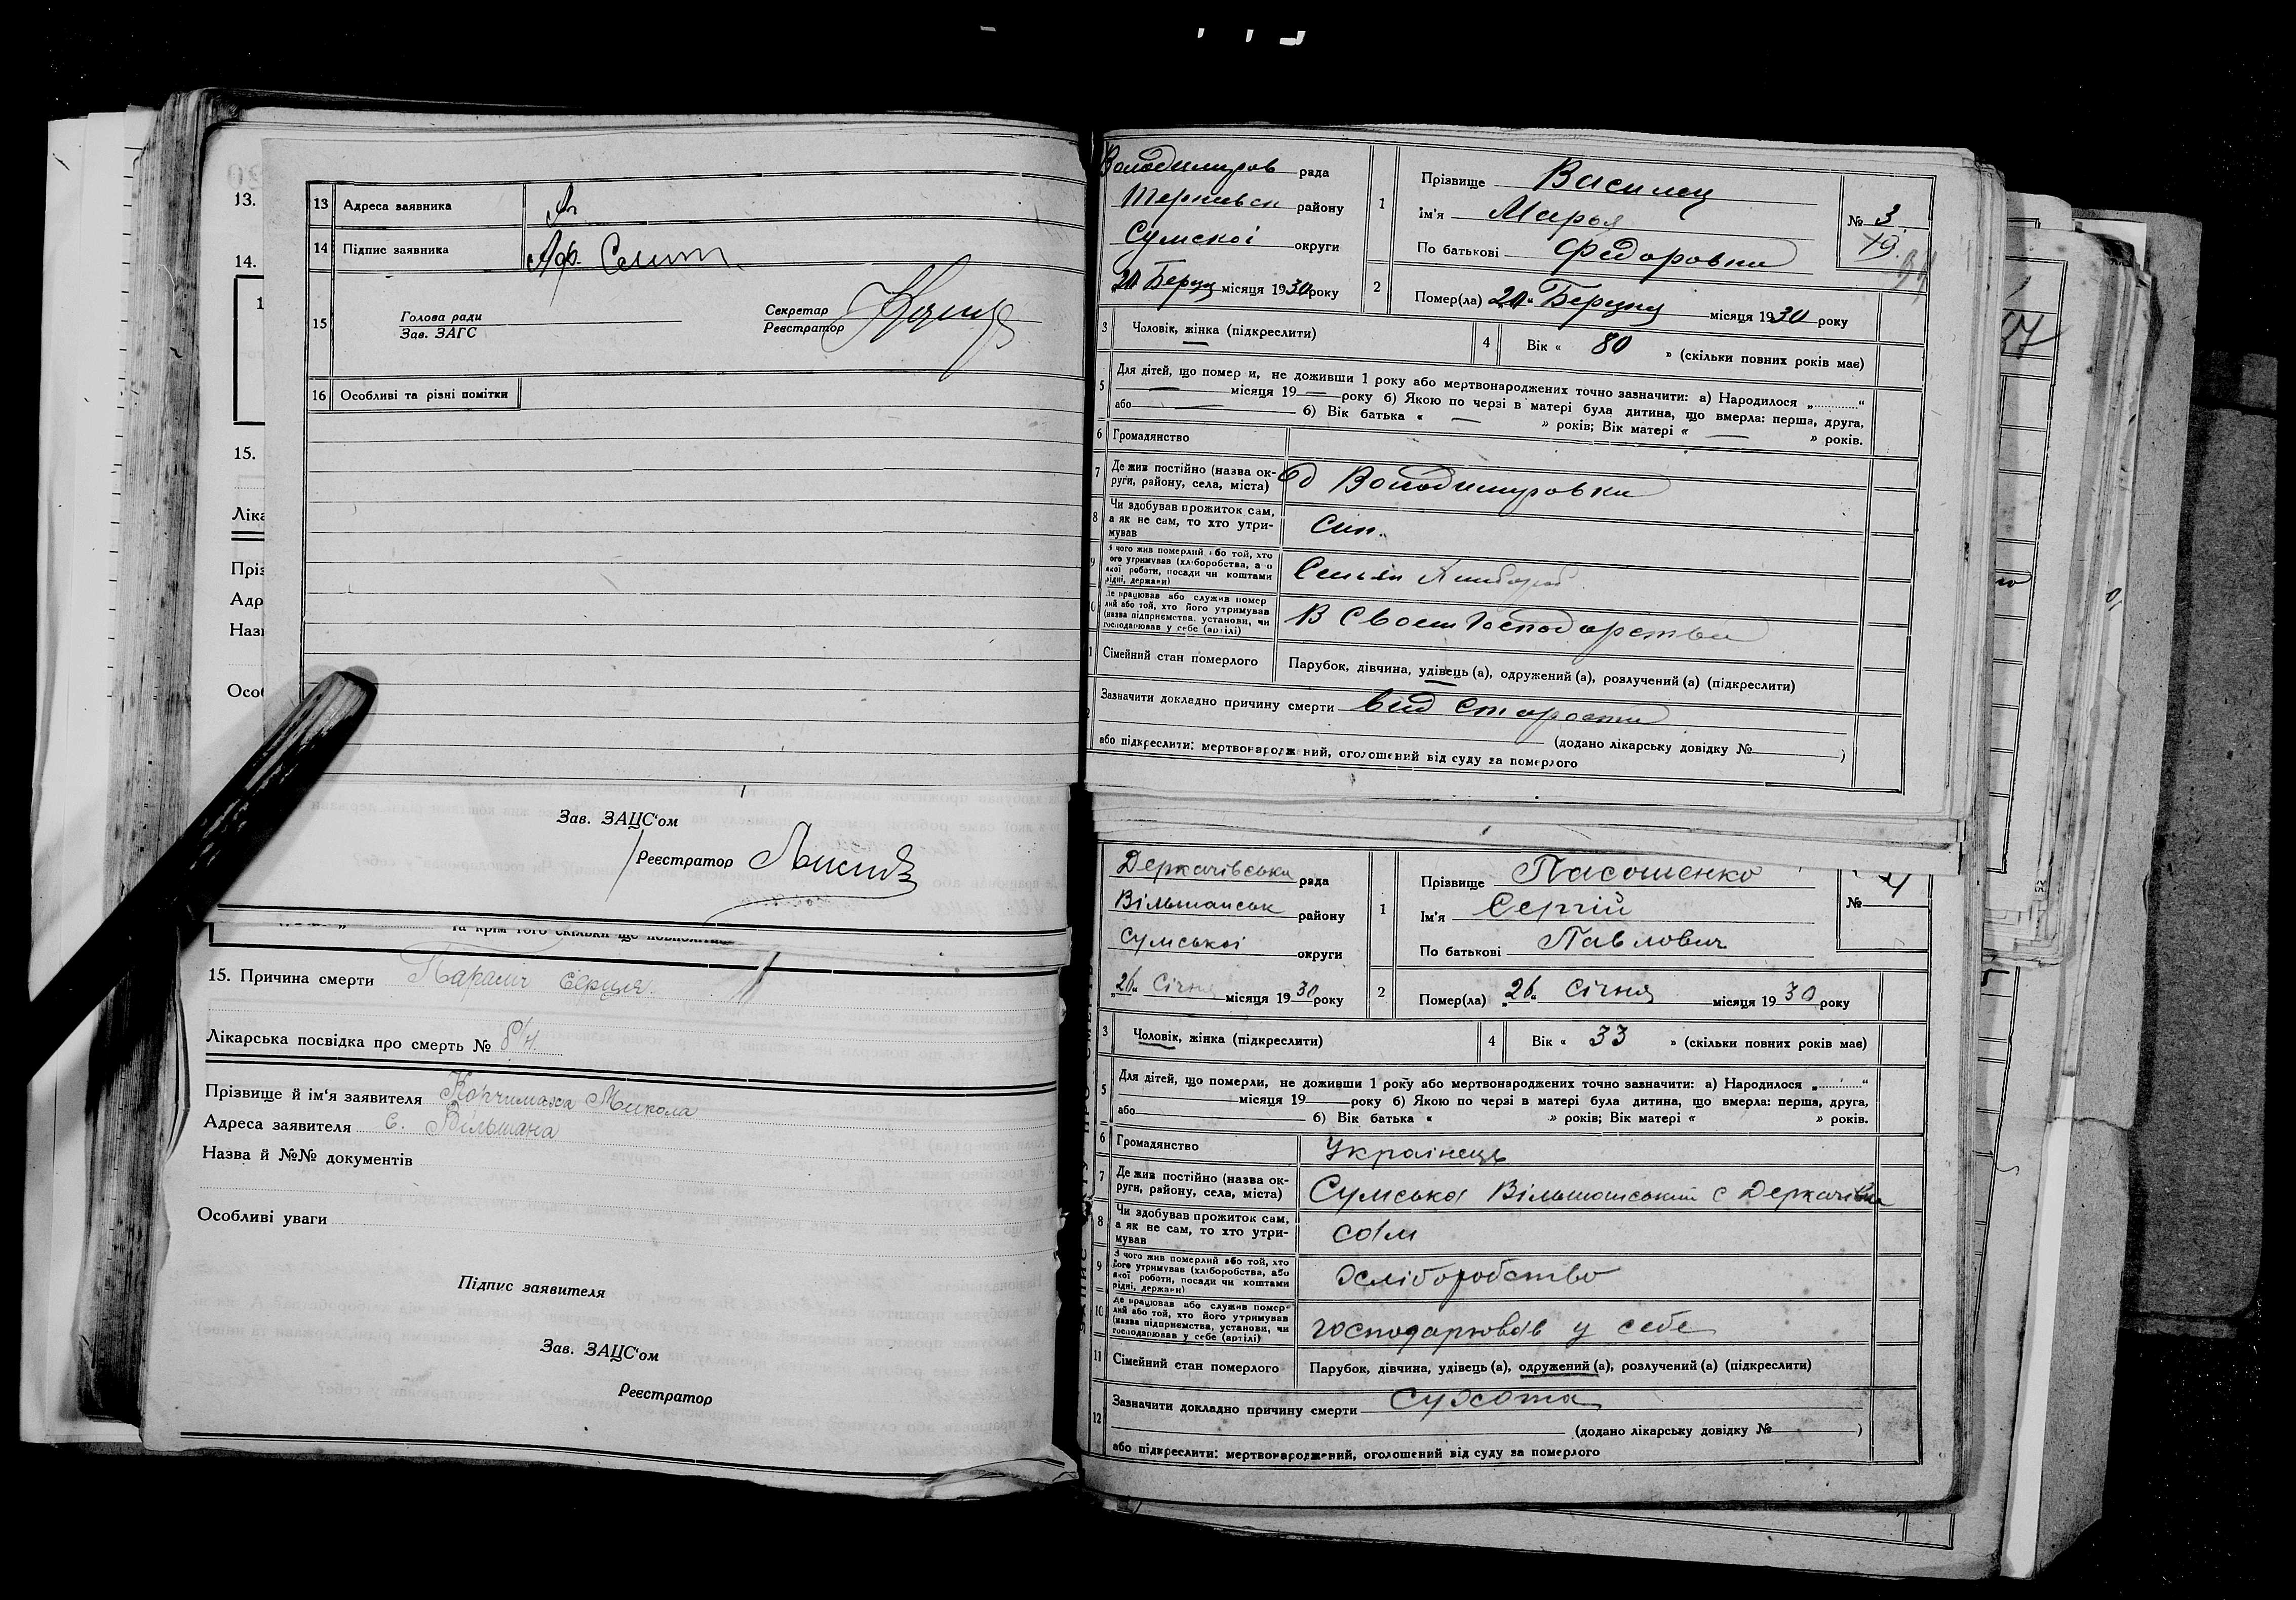 13 Адреса заявника
14 Підпис заявника
15 Голова ради
Зав. ЗАГС
Секретар
Реєстратор
16 Особливі та різні помітки
13.
14.
15.
Зав. ЗАЦС'ом
Реєстратор
15. Причина смерти Параліч Серця.
Лікарська посвідка про смерть № б/н.
Прізвище й ім'я заявителя Микола
Адреса заявителя с. Вільшана
Назва й №№ документів
Особливі уваги
Підпис заявителя
Зав. ЗАЦС'ом
Реєстратор
Володимиров рада
району
Сумскої округи
місяця 1930 року
1 Прізвище Василец
ім'я Марья
По батькові Федоровна
№ 3
2 Помер(ла) місяця 1930 року
3 Чоловік, жінка (підкреслити)
4 Вік « 80 » (скільки повних років має)
5 Для дітей, що помер и, не доживши 1 року або мертвонароджених точно зазначити: а) Народилося „ “
місяця 19 року б) Якою по черзі в матері була дитина, що вмерла: перша, друга,
або б) Вік батька « » років; Вік матері « » років.
6 Громадянство
7 Де жив постійно (назва ок-
руги, району, села, міста) Володимировка
8 Чи здобував прожиток сам,
а як не сам, то хто утри-
мував син.
9 З чого жив померлий або той, хто
ого утримував (хліборобства, а о
якої роботи, посади чи коштами
рідні, держави)
Де працював або служив помер
лий або той, хто його утримував
(назва підприємства, установи, чи
господарював у себе (артілі) В своем господарстви
Сімейний стан померлого Парубок, дівчина, удівець (а), одружений (а), розлучений (а) (підкреслити)
Зазначити докладно причину смерти вид старости
(додано лікарську довідку № )
або підкреслити: мертвонародж ний, оголошений від суду за померлого
Деркачівська рада
Вільшанськ району
Сумської округи
„26“ Січня місяця 1930 року
1 Прізвище Пасошенко
Ім'я Сергій
По батькові Павлович
№ 4
2 Помер(ла) „26“ Січня місяця 1930 року
3 Чоловік, жінка (підкреслити)
4 Вік « 33 » (скільки повних років має)
5 Для дітей, що померли, не доживши 1 року або мертвонароджених точно зазначити: а) Народилося „ “
місяця 19 року б) Якою по черзі в матері була дитина, що вмерла: перша, друга,
або б) Вік батька « » років; Вік матері « » років.
6 Громадянство Українець
7 Де жив постійно (назва ок-
руги, району, села, міста) Сумська Вільшанський с Деркачівка
8 Чи здобував прожиток сам,
а як не сам, то хто утри-
мував сам
9 З чого жив померлий або той, хто
його утримував (хліборобства, або
якої роботи, посади чи коштами
рідні, держави) Хліборобство
10 Де працював або служив помер
лий або той, хто його утримував
(назва підприємства, установи, чи
господарював у себе (артілі) господарював у себе
11 Сімейний стан померлого Парубок, дівчина, удівець (а), одружений (а), розлучений (а) (підкреслити)
12 Зазначити докладно причину смерти Сухота
(додано лікарську довідку № )
або підкреслити: мертвонароджений, оголошений від суду за померлого